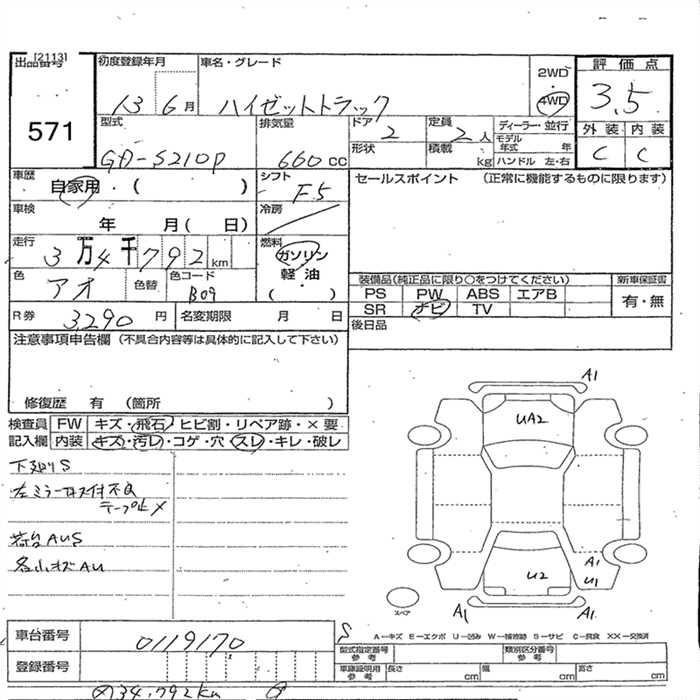 [2113]
出品番号
571
初度登録年月
13 6月
車名・グレード
ハイゼットトラック
2WD
4WD
評価点
3.5
外装 内装
C C
型式
GD-S210P
排気量
660 cc
ドア
2
定員
2人
形状
積載
kg
ディーラー・並行
モデル年式 年
ハンドル 左・右
車歴
自家用・( )
シフト
F5
セールスポイント (正常に機能するものに限ります)
車検
年 月( 日)
冷房
走行
3万4千792km
燃料
ガソリン
軽・油
( )
色
アオ
色替
色コード
B09
装備品(純正品に限り○をつけてください)
PS PW ABS エアB
SR ナビ TV
新車保証書
有・無
後日品
R券
3,290 円
名変期限 月 日
注意事項申告欄 (不具合内容等は具体的に記入して下さい)
修復歴 有 (箇所 )
検査員記入欄
FW キズ・飛石・ヒビ割・リペア跡・×要
内装 キズ・汚レ・コゲ・穴・スレ・キレ・破レ
下廻りS
左ミラー取付不良
テープ止メ
荷台AUS
各小キズAU
A1
UA2
A1
U1
U2
A1
A1
スペア
S
A-キズ E-エクボ U-凹み W-補修跡 S-サビ C-腐食 XX-交換済
車台番号
0119170
登録番号
型式指定番号
参考
類別区分番号
参考
車検証明用
参考
長さ cm
幅 cm
高さ cm
34,792km